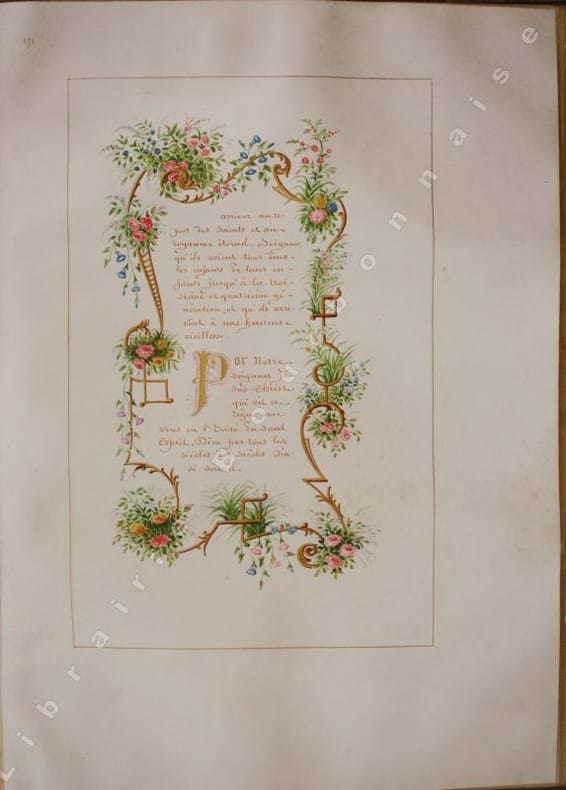 151
arriver au re-
pos des Saints et au
royaume éternel, Seigneur,
qu'ils voient tous deux
les enfants de leurs en-
fants jusqu'à la troi-
sième et quatrième gé-
nération, et qu'ils arri-
vent à une heureuse
vieillesse.
PAr Notre
Seigneur Jé-
sus Christ
qui vit et
règne avec
vous en l'Unité du Saint
Esprit, Dieu par tous les
siècles des siècles. Ain-
si soit-il.
Librairie Bourbonnaise